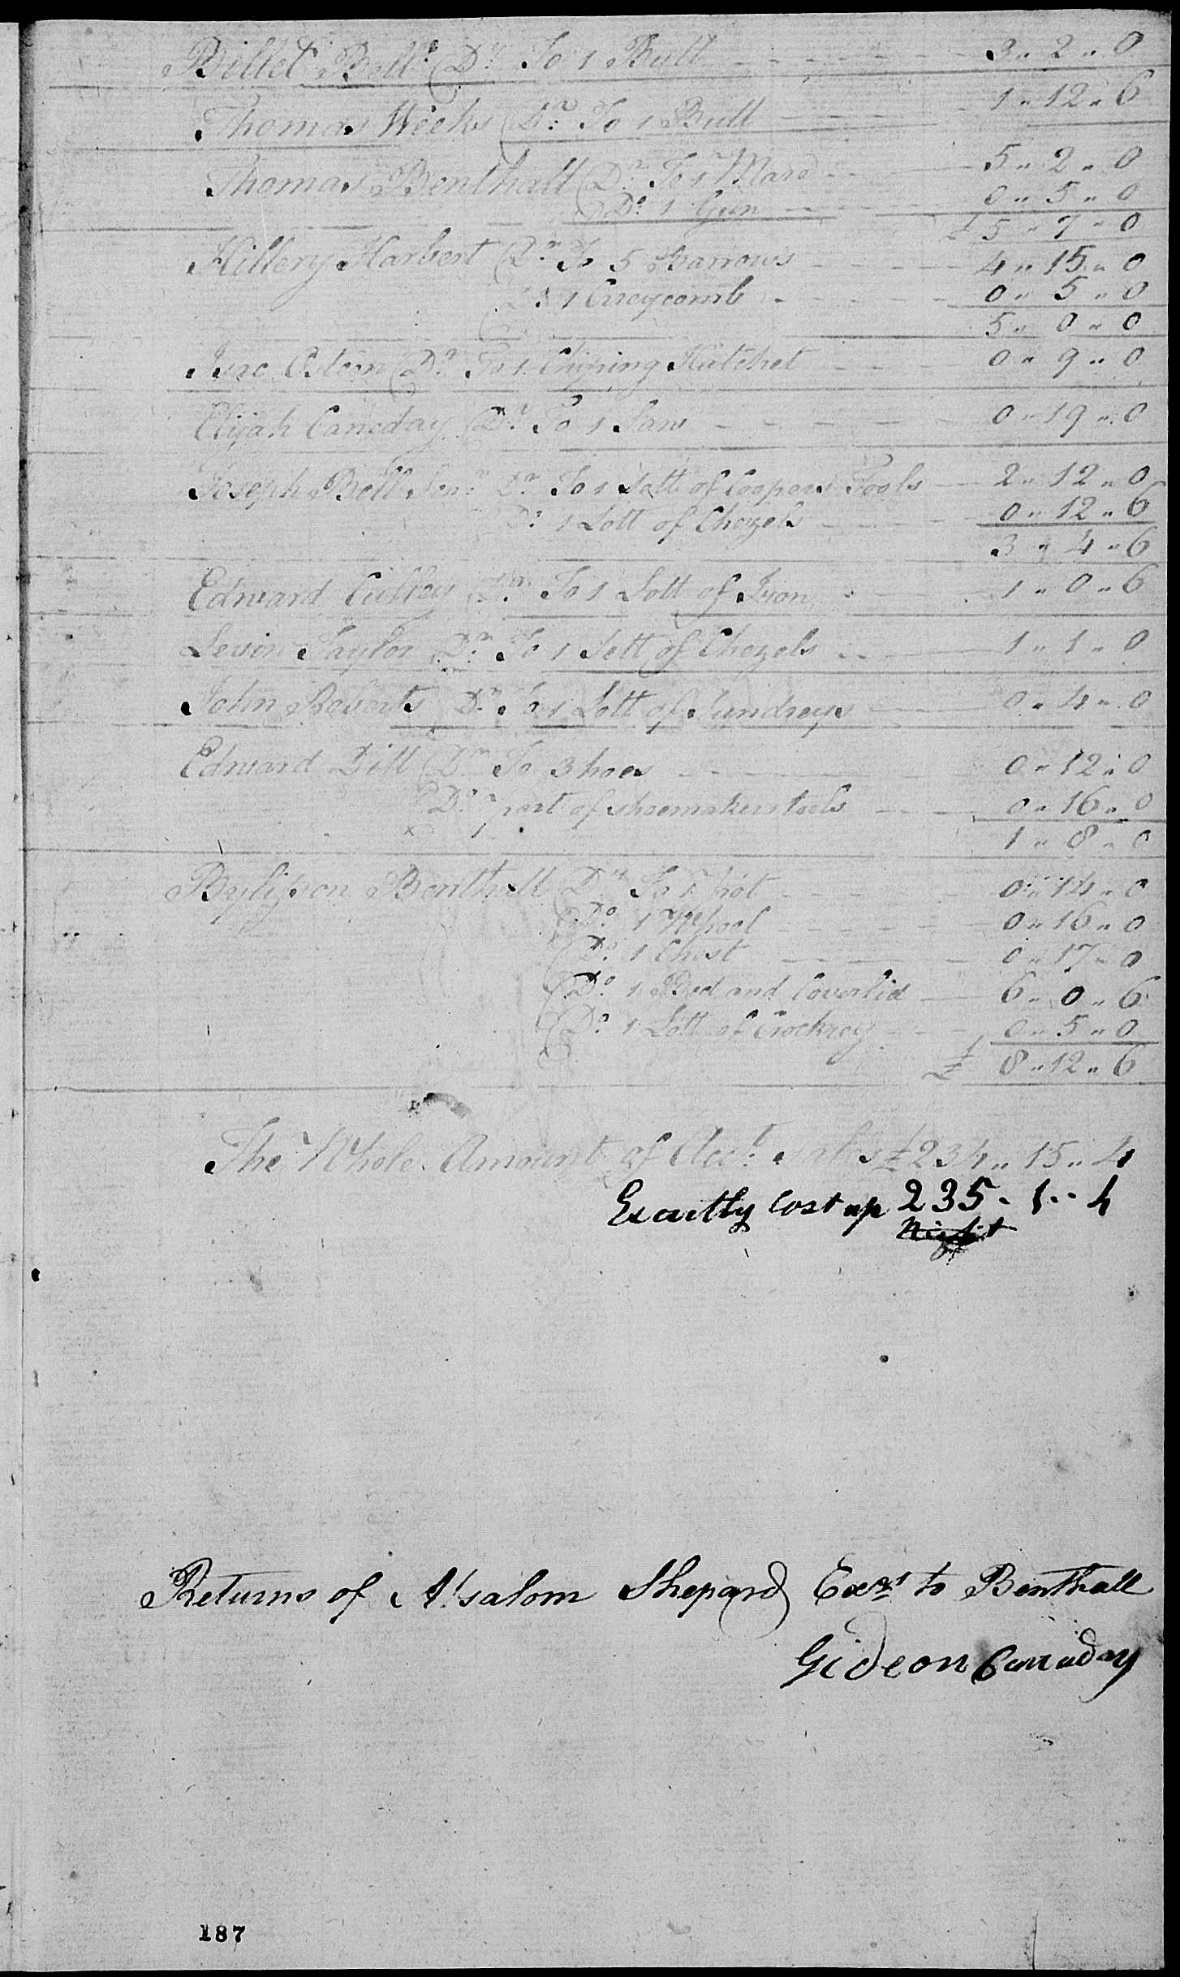 Billet Bell (Dr To 1 Bull 3 " 2 " 0
Thomas Weeks (Dr To 1 Bull 1 " 12 " 6
Thomas Benthall (Dr To 1 Mare 5 " 2 " 0
Do 1 Gun 0 " 5 " 0
£ 5 " 7 " 0
Hillery Harbert (Dr To 5 Barrows 4 " 15 " 0
1 Curycomb 0 " 5 " 0
5 " 0 " 0
Dr To 1 Chiping Hatchet 0 " 9 " 0
Elijah Canaday (Dr To 1 Saw 0 " 19 " 0
Joseph Bell Senr Dr To 1 Sett of Coopers Tools 2 " 12 " 0
Do 1 Lott of Chezels 0 " 12 " 6
3 " 4 " 6
Edward Dr To 1 Lott of Iron 1 " 0 " 6
Levin Taylor Dr To 1 Sett of Chezels 1 " 1 " 0
John Roberts (Dr To 1 Lott of Sundreys 0 " 4 " 0
Edward Dill (Dr To 3 hoes 0 " 12 " 0
Do part of shoemakers tools 0 " 16 " 0
1 " 8 " 0
Benthall (Dr To 1 Pot 0 " 14 " 0
(Do 1 Wheel 0 " 16 " 0
(Do 1 Chest 0 " 17 " 0
(Do 1 Bed and Coverlid 6 " 0 " 6
(Do 1 Lott of Crockrey 0 " 5 " 0
£ 8 " 12 " 6
The Whole Amount of Acct sales £234 " 15 " 4
Exactly Cost up 235 - 1 " 4
Returns of Absalom Shepard Exr to Benthall
Gideon Canaday
187